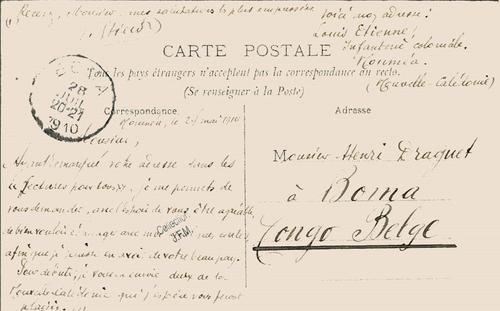 Recevez, Monsieur, mes salutations le plus empressées
Voici mon adresse:
Louis Etienne
Infanterie coloniale.
Nouméa.
(Nouvelle-Calédonie)
CARTE POSTALE
Tous les pays étrangers n'acceptent pas la correspondance au recto.
(Se renseigner à la Poste)
BOMA
28
JUIL
20-21
1910
Correspondance
Adresse
Nouméa, le mai 1910
Monsieur,
Ayant remarqué votre adresse dans les
Lectures pour tous, je me permets de
vous demander, avec l'espoir de vous être agréable,
bien vouloir échanger avec moi cartes
afin que je puisse avoir de votre beau pays.
Pour débuter, je vous envoie deux de la
Nouvelle-Calédonie qui j'espère vous feront
plaisir.
Collection
J.F.M.
Monsieur Henri Draguet
à Boma
Congo Belge